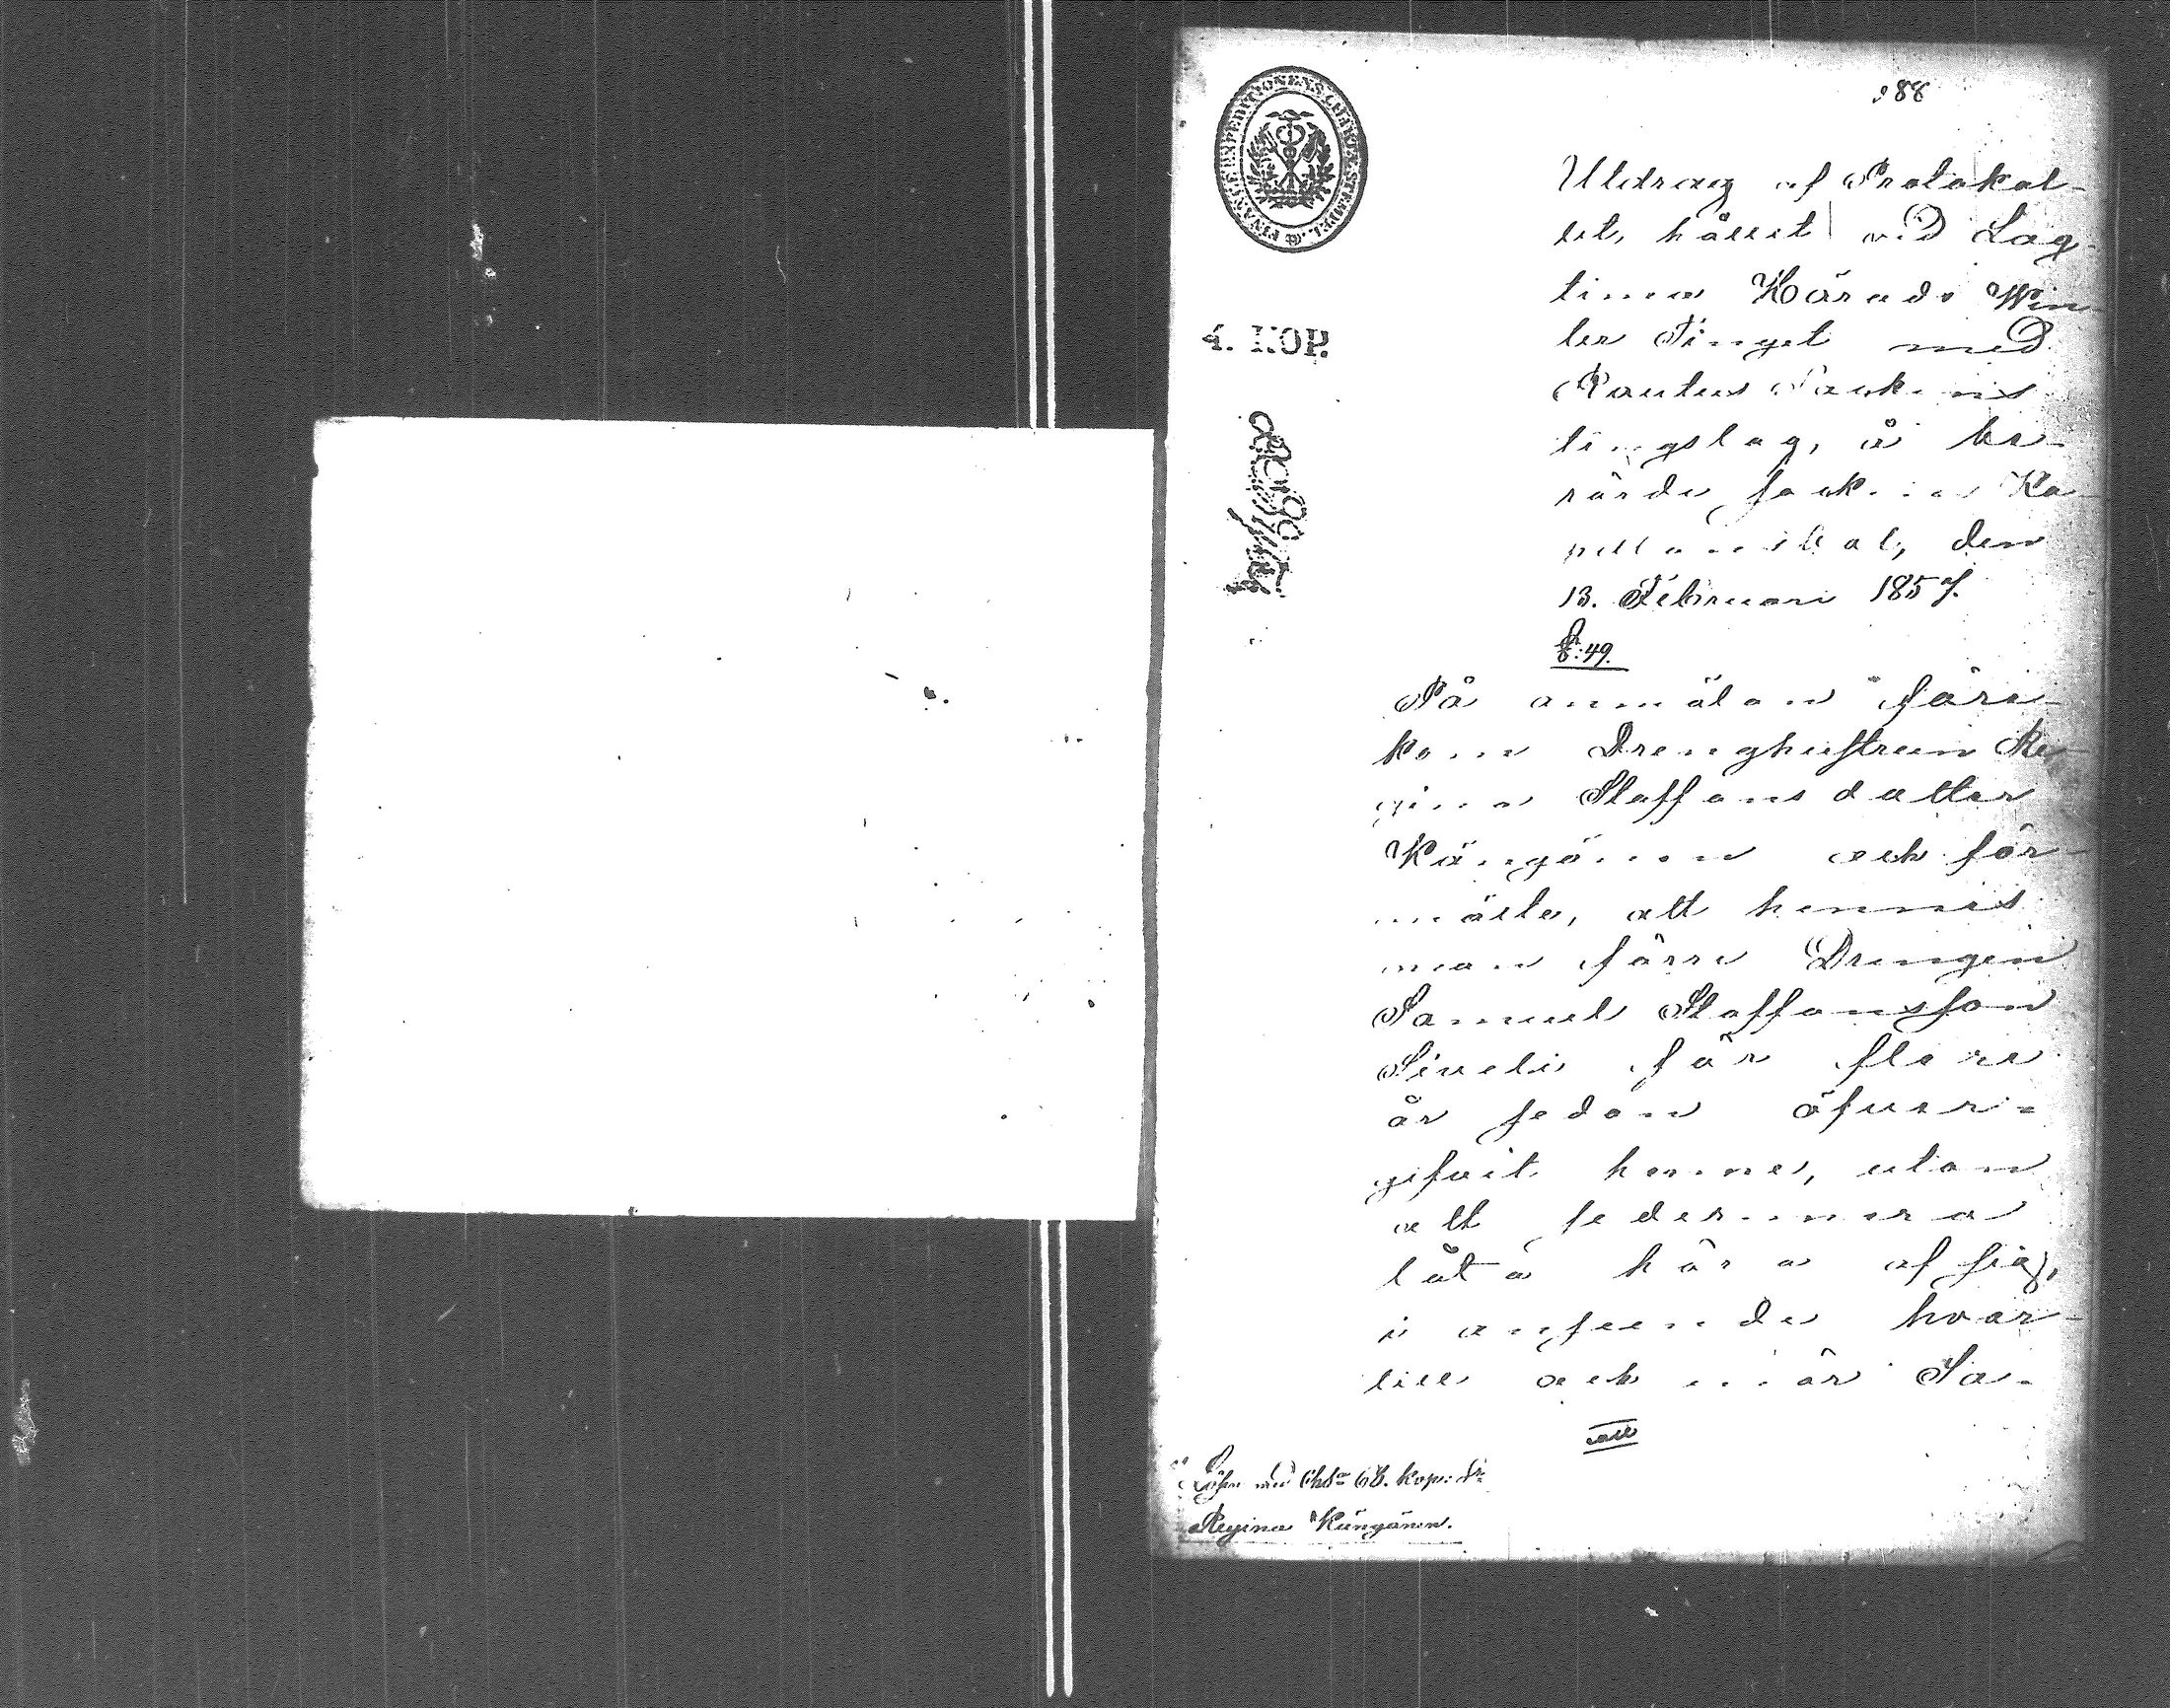 288
FINANCE EXPEDITIONENS CHARTA STEMPEL
4. KOP.
Utdrag af Protokol-
let, hållet vid Lag-
tima Härads Win-
ter Tinget med
Pautus Sockens
tingslag, å be-
rörde socken Ka-
den
13. Februari 1857.
§:49.
På anmälan före-
kom Drenghustrun Re-
gina Staffansdotter
Kängänen och för-
mälte, att hennes
man förre Drengen
Samuel Staffansson
Siveli för flere
år sedan öfver-
gifvit henne, utan
att sedermera
låta höra af sig,
i anseende hvar-
till och när Sa-
Lösen med Cha 68. kop: Sr
Regina Kängänen.